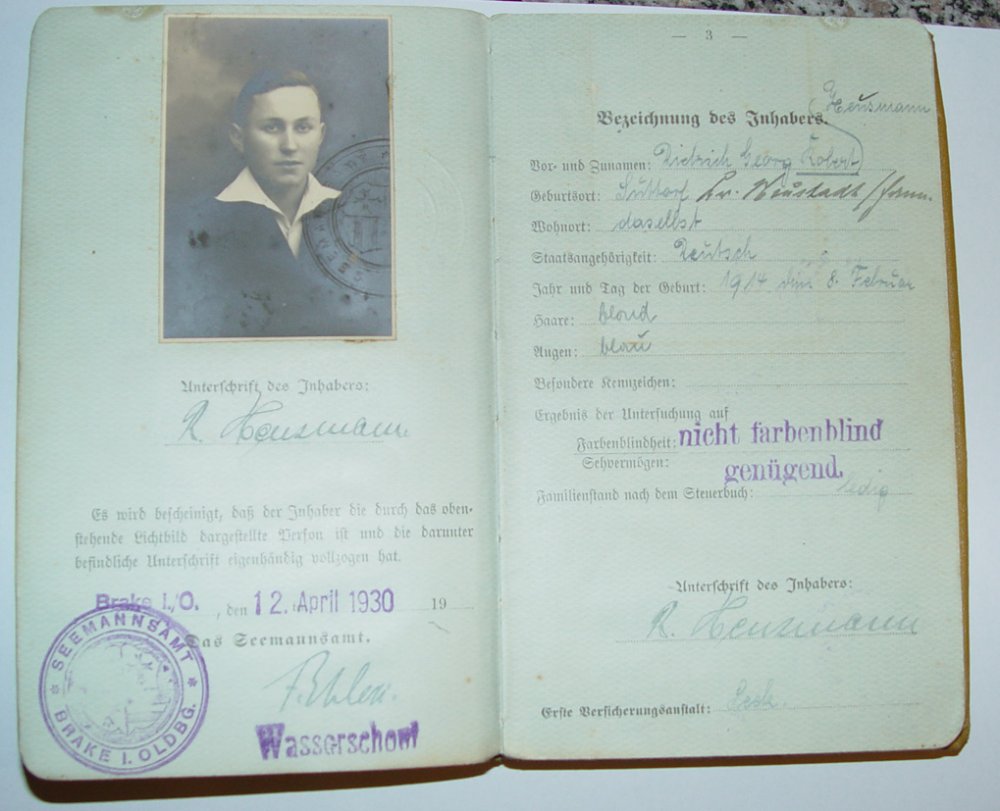 SEEMANNSAMT
Unterschrift des Inhabers:
R. Heusmann
Es wird bescheinigt, daß der Inhaber die durch das oben-
stehende Lichtbild dargestellte Person ist und die darunter
befindliche Unterschrift eigenhändig vollzogen hat.
Brake i./O., den 12. April 1930 19
Das Seemannsamt.
SEEMANNSAMT
BRAKE I. OLDBG.
Wasserschout
— 3 —
Heusmann
Bezeichnung des Inhabers.
Vor- und Zunamen: Dietrich Georg Robert
Geburtsort: Suttorf Kr. Neustadt / Hann.
Wohnort: daselbst
Staatsangehörigkeit: Deutsch
Jahr und Tag der Geburt: 1914 den 8. Februar
Haare: blond
Augen: blau
Besondere Kennzeichen:
Ergebnis der Untersuchung auf
Farbenblindheit: nicht farbenblind
Sehvermögen: genügend.
Familienstand nach dem Steuerbuch: ledig
Unterschrift des Inhabers:
R. Heusmann
Erste Versicherungsanstalt: Seek.